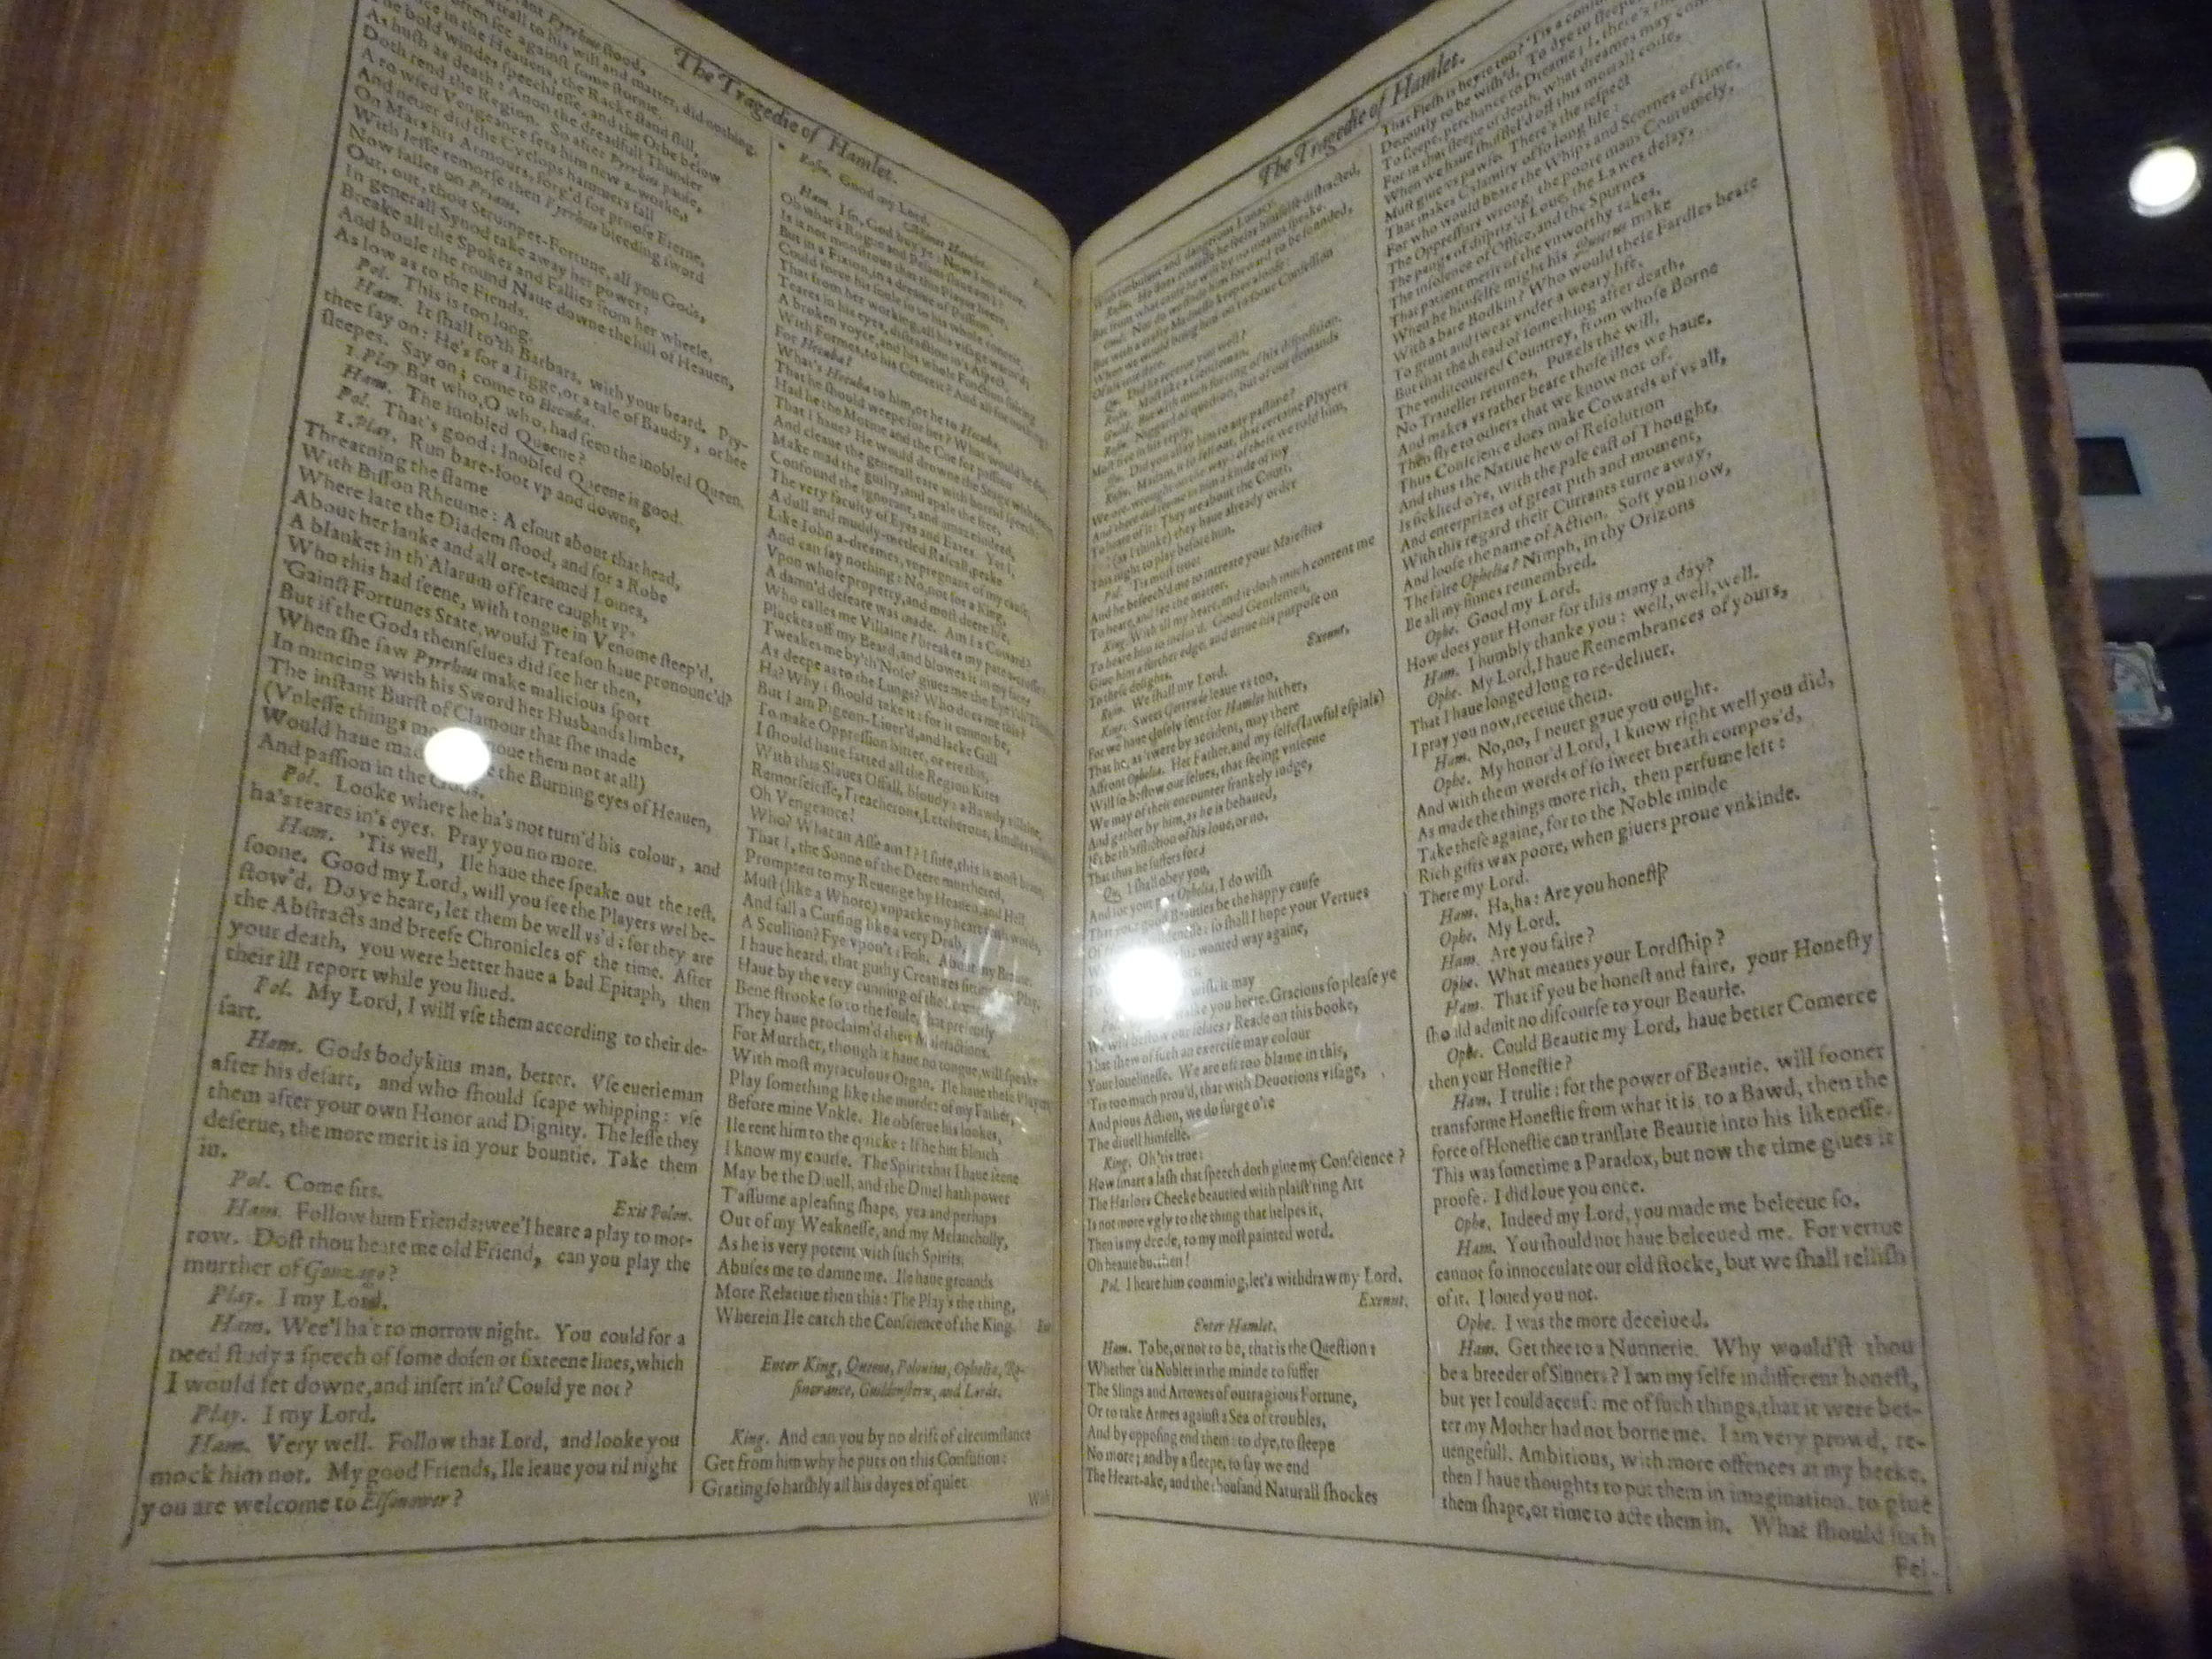 The Tragedie of Hamlet.
Pyrrhus ſtood,
to his will and matter, did nothing.
often ſee againſt ſome ſtorme,
in the Heauens, the Racke ſtand ſtill,
The bold windes ſpeechleſſe, and the Orbe below
As huſh as death: Anon the dreadfull Thunder
Doth rend the Region. So after Pyrrhus pauſe,
A rowſed Vengeance ſets him new a-worke,
And neuer did the Cyclops hammers fall
On Mars his Armours, forg'd for proofe Eterne,
With leſſe remorſe then Pyrrhus bleeding ſword
Now falles on Priam.
Out, out, thou Strumpet-Fortune, all you Gods,
In generall Synod take away her power:
Breake all the Spokes and Fallies from her wheele,
And boule the round Naue downe the hill of Heauen,
As low as to the Fiends.
Pol. This is too long.
Ham. It ſhall to'th Barbars, with your beard. Pry-
thee ſay on: He's for a Iigge, or a tale of Baudry, or hee
ſleepes. Say on; come to Hecuba.
1. Play. But who, O who, had ſeen the inobled Queen.
Ham. The inobled Queene?
Pol. That's good: Inobled Queene is good.
1. Play. Run bare-foot vp and downe,
Threatning the flame
With Biſſon Rheume: A clout about that head,
Where late the Diadem ſtood, and for a Robe
About her lanke and all ore-teamed Loines,
A blanket in th'Alarum of feare caught vp.
Who this had ſeene, with tongue in Venome ſteep'd,
'Gainſt Fortunes State, would Treaſon haue pronounc'd?
But if the Gods themſelues did ſee her then,
When ſhe ſaw Pyrrhus make malicious ſport
In mincing with his Sword her Husbands limbes,
The inſtant Burſt of Clamour that ſhe made
(Vnleſſe things moue them not at all)
Would haue the Burning eyes of Heauen,
And paſſion in the Gods.
Pol. Looke where he ha's not turn'd his colour, and
ha's teares in's eyes. Pray you no more.
Ham. 'Tis well, Ile haue thee ſpeake out the reſt,
ſoone. Good my Lord, will you ſee the Players wel be-
ſtow'd. Do ye heare, let them be well vs'd: for they are
the Abſtracts and breefe Chronicles of the time. After
your death, you were better haue a bad Epitaph, then
their ill report while you liued.
Pol. My Lord, I will vſe them according to their de-
ſart.
Ham. Gods bodykins man, better. Vſe euerie man
after his deſart, and who ſhould ſcape whipping: vſe
them after your own Honor and Dignity. The leſſe they
deſerue, the more merit is in your bountie. Take them
in.
Pol. Come ſirs. Exit Polon.
Ham. Follow him Friends: wee'l heare a play to mor-
row. Doſt thou heare me old Friend, can you play the
murther of Gonzago?
Play. I my Lord.
Ham. Wee'l ha't to morrow night. You could for a
need ſtudy a ſpeech of ſome doſen or ſixteene lines, which
I would ſet downe, and inſert in't? Could ye not?
Play. I my Lord.
Ham. Very well. Follow that Lord, and looke you
mock him not. My good Friends, Ile leaue you til night
you are welcome to Elſonower?
Roſin. Good my Lord.
Manet Hamlet.
Ham. I ſo, God buy'ye: Now I am alone.
Oh what a Rogue and Peſant ſlaue am I?
Is it not monſtrous that this Player heere,
But in a Fixion, in a dreame of Paſſion,
Could force his ſoule ſo to his whole conceit,
That from her working, all his viſage warm'd;
Teares in his eyes, diſtraction in's Aſpect,
A broken voyce, and his whole Function ſuiting
With Formes, to his Conceit? And all for nothing?
For Hecuba?
What's Hecuba to him, or he to Hecuba,
That he ſhould weepe for her? What would he doe,
Had he the Motiue and the Cue for paſſion
That I haue? He would drowne the Stage with teares,
And cleaue the generall eare with horrid ſpeech:
Make mad the guilty, and apale the free,
Confound the ignorant, and amaze indeed,
The very faculty of Eyes and Eares. Yet I,
A dull and muddy-metled Raſcall, peake
Like Iohn a-dreames, vnpregnant of my cauſe,
And can ſay nothing: No, not for a King,
Vpon whoſe property, and moſt deere life,
A damn'd defeate was made. Am I a Coward?
Who calles me Villaine? breakes my pate a-croſſe?
Pluckes off my Beard, and blowes it in my face?
Tweakes me by'th'Noſe? giues me the Lye i'th'
As deepe as to the Lungs? Who does me this?
Ha? Why I ſhould take it: for it cannot be,
But I am Pigeon-Liuer'd, and lacke Gall
To make Oppreſſion bitter, or ere this,
I ſhould haue fatted all the Region Kites
With this Slaues Offall, bloudy: a Bawdy villaine,
Remorſeleſſe, Treacherous, Letcherous, kindles villaine!
Oh Vengeance!
Who? What an Aſſe am I? I ſure, this is moſt braue,
That I, the Sonne of the Deere murthered,
Prompted to my Reuenge by Heauen, and Hell,
Muſt (like a Whore) vnpacke my heart with words,
And fall a Curſing like a very Drab,
A Scullion? Fye vpon't: Foh. About my Braine.
I haue heard, that guilty Creatures ſitting at a Play,
Haue by the very cunning of the
Bene ſtrooke ſo to the ſoule, that preſently
They haue proclaim'd their Malefactions.
For Murther, though it haue no tongue, will ſpeake
With moſt myraculous Organ. Ile haue theſe Players,
Play ſomething like the murder of my Father,
Before mine Vnkle. Ile obſerue his lookes,
Ile rent him to the quicke: If he but blench
I know my courſe. The Spirit that I haue ſeene
May be the Diuell, and the Diuel hath power
T'aſſume a pleaſing ſhape, yea and perhaps
Out of my Weakneſſe, and my Melancholly,
As he is very potent with ſuch Spirits,
Abuſes me to damne me. Ile haue grounds
More Relatiue then this: The Play's the thing,
Wherein Ile catch the Conſcience of the King.
Enter King, Queene, Polonius, Ophelia, Ro-
ſincrance, Guildenſtern, and Lords.
King. And can you by no drift of circumſtance
Get from him why he puts on this Confuſion:
Grating ſo harſhly all his dayes of quiet
With
The Tragedie of Hamlet.
With turbulent and dangerous Lunacy.
Roſin. He does confeſſe he feeles himſelfe diſtracted,
But from what cauſe he will by no meanes ſpeake.
Guil. Nor do we finde him forward to be ſounded,
But with a crafty Madneſſe keepes aloofe:
When we would bring him on to ſome Confeſſion
Of his true ſtate.
Qu. Did he receiue you well?
Roſin. Moſt like a Gentleman.
Guild. But with much forcing of his diſpoſition.
Roſin. Niggard of queſtion, but of our demands
Moſt free in his reply.
Qu. Did you aſſay him to any paſtime?
Roſin. Madam, it ſo fell out, that certaine Players
We ore-wrought on the way: of theſe we told him,
And there did ſeeme in him a kinde of ioy
To heare of it: They are about the Court,
And (as I thinke) they haue already order
This night to play before him.
Pol. 'Tis moſt true:
And he beſeech'd me to intreate your Maieſties
To heare, and ſee the matter.
King. With all my heart, and it doth much content me
To heare him ſo inclin'd. Good Gentlemen,
Giue him a further edge, and driue his purpoſe on
To theſe delights.
Roſin. We ſhall my Lord. Exeunt.
King. Sweet Gertrude leaue vs too,
For we haue cloſely ſent for Hamlet hither,
That he, as 'twere by accident, may there
Affront Ophelia. Her Father, and my ſelfe (lawful eſpials)
Will ſo beſtow our ſelues, that ſeeing vnſeene
We may of their encounter frankely iudge,
And gather by him, as he is behaued,
If't be th'affliction of his loue, or no,
That thus he ſuffers for.
Qu. I ſhall obey you,
And for your part Ophelia, I do wiſh
That your good Beauties be the happy cauſe
Of ſo ſhall I hope your Vertues
his wonted way againe,
wiſh it may
you heere. Gracious ſo pleaſe ye
We will beſtow our ſelues: Reade on this booke,
That ſhew of ſuch an exerciſe may colour
Your lonelineſſe. We are oft too blame in this,
'Tis too much prou'd, that with Deuotions viſage,
And pious Action, we do ſurge o're
The diuell himſelfe.
King. Oh 'tis true:
How ſmart a laſh that ſpeech doth giue my Conſcience?
The Harlots Cheeke beautied with plaiſt'ring Art
Is not more vgly to the thing that helpes it,
Then is my deede, to my moſt painted word.
Oh heauie burthen!
Pol. I heare him comming, let's withdraw my Lord.
Exeunt.
Enter Hamlet.
Ham. To be, or not to be, that is the Queſtion:
Whether 'tis Nobler in the minde to ſuffer
The Slings and Arrowes of outragious Fortune,
Or to take Armes againſt a Sea of troubles,
And by oppoſing end them: to dye, to ſleepe
No more; and by a ſleepe, to ſay we end
The Heart-ake, and the thouſand Naturall ſhockes
That Fleſh is heyre too? 'Tis a
Deuoutly to be wiſh'd. To dye to ſleepe,
To ſleepe, perchance to Dreame; I, there's the
For in that ſleepe of death, what dreames may come,
When we haue ſhuffel'd off this mortall coile,
Muſt giue vs pawſe. There's the reſpect
That makes Calamity of ſo long life:
For who would beare the Whips and Scornes of time,
The Oppreſſors wrong, the poore mans Contumely,
The pangs of diſpriz'd Loue, the Lawes delay,
The inſolence of Office, and the Spurnes
That patient merit of the vnworthy takes,
When he himſelfe might his Quietus make
With a bare Bodkin? Who would theſe Fardles beare
To grunt and ſweat vnder a weary life,
But that the dread of ſomething after death,
The vndiſcouered Countrey, from whoſe Borne
No Traueller returnes, Puzels the will,
And makes vs rather beare thoſe illes we haue,
Then flye to others that we know not of.
Thus Conſcience does make Cowards of vs all,
And thus the Natiue hew of Reſolution
Is ſicklied o're, with the pale caſt of Thought,
And enterprizes of great pith and moment,
With this regard their Currants turne away,
And looſe the name of Action. Soft you now,
The faire Ophelia? Nimph, in thy Orizons
Be all my ſinnes remembred.
Ophe. Good my Lord,
How does your Honor for this many a day?
Ham. I humbly thanke you: well, well, well.
Ophe. My Lord, I haue Remembrances of yours,
That I haue longed long to re-deliuer.
I pray you now, receiue them.
Ham. No, no, I neuer gaue you ought.
Ophe. My honor'd Lord, I know right well you did,
And with them words of ſo ſweet breath compos'd,
As made the things more rich, then perfume left:
Take theſe againe, for to the Noble minde
Rich gifts wax poore, when giuers proue vnkinde.
There my Lord.
Ham. Ha, ha: Are you honeſt?
Ophe. My Lord.
Ham. Are you faire?
Ophe. What meanes your Lordſhip?
Ham. That if you be honeſt and faire, your Honeſty
ſhould admit no diſcourſe to your Beautie.
Ophe. Could Beautie my Lord, haue better Comerce
then your Honeſtie?
Ham. I trulie: for the power of Beautie, will ſooner
transforme Honeſtie from what it is, to a Bawd, then the
force of Honeſtie can tranſlate Beautie into his likeneſſe.
This was ſometime a Paradox, but now the time giues it
proofe. I did loue you once.
Ophe. Indeed my Lord, you made me beleeue ſo.
Ham. You ſhould not haue beleeued me. For vertue
cannot ſo innocculate our old ſtocke, but we ſhall relliſh
of it. I loued you not.
Ophe. I was the more deceiued.
Ham. Get thee to a Nunnerie. Why would'ſt thou
be a breeder of Sinners? I am my ſelfe indifferent honeſt,
but yet I could accuſe me of ſuch things, that it were bet-
ter my Mother had not borne me. I am very prowd, re-
uengefull, Ambitious, with more offences at my becke,
then I haue thoughts to put them in imagination, to giue
them ſhape, or time to acte them in. What ſhould ſuch
Fel-